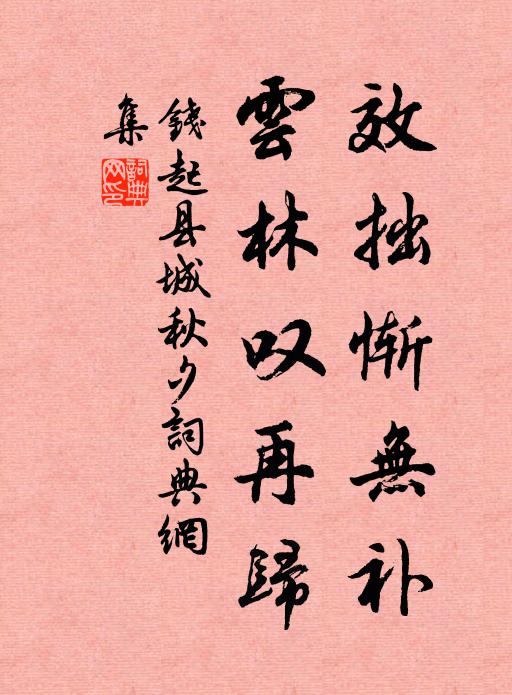 效拙惭無补
雲林叹再歸
錢起县城秋夕詞典網
集
詞典網印